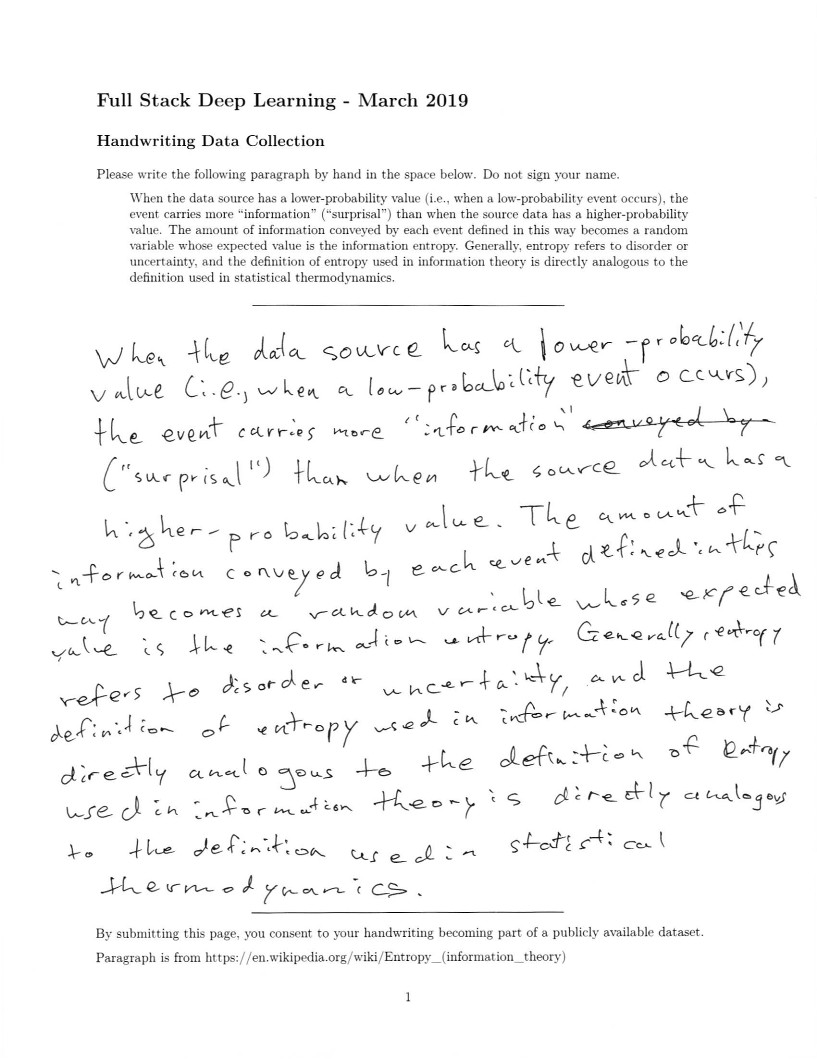 Full Stack Deep Learning - March 2019
Handwriting Data Collection
Please write the following paragraph by hand in the space below. Do not sign your name.
When the data source has a lower-probability value (i.e., when a low-probability event occurs), the
event carries more “information” (“surprisal”) than when the source data has a higher-probability
value. The amount of information conveyed by each event defined in this way becomes a random
variable whose expected value is the information entropy. Generally, entropy refers to disorder or
uncertainty, and the definition of entropy used in information theory is directly analogous to the
definition used in statistical thermodynamics.
When the data source has a lower-probability
value (i.e., when a low-probability event occurs),
the event carries more "information" conveyed by
("surprisal") than when the source data has a
higher-probability value. The amount of
information conveyed by each event defined in this
way becomes a random variable whose expected
value is the information entropy. Generally, entropy
refers to disorder or uncertainty, and the
definition of entropy used in information theory is
directly analogous to the definition of entropy
used in information theory is directly analogous
to the definition used in statistical
thermodynamics.
By submitting this page, you consent to your handwriting becoming part of a publicly available dataset.
Paragraph is from https://en.wikipedia.org/wiki/Entropy_(information_theory)
1